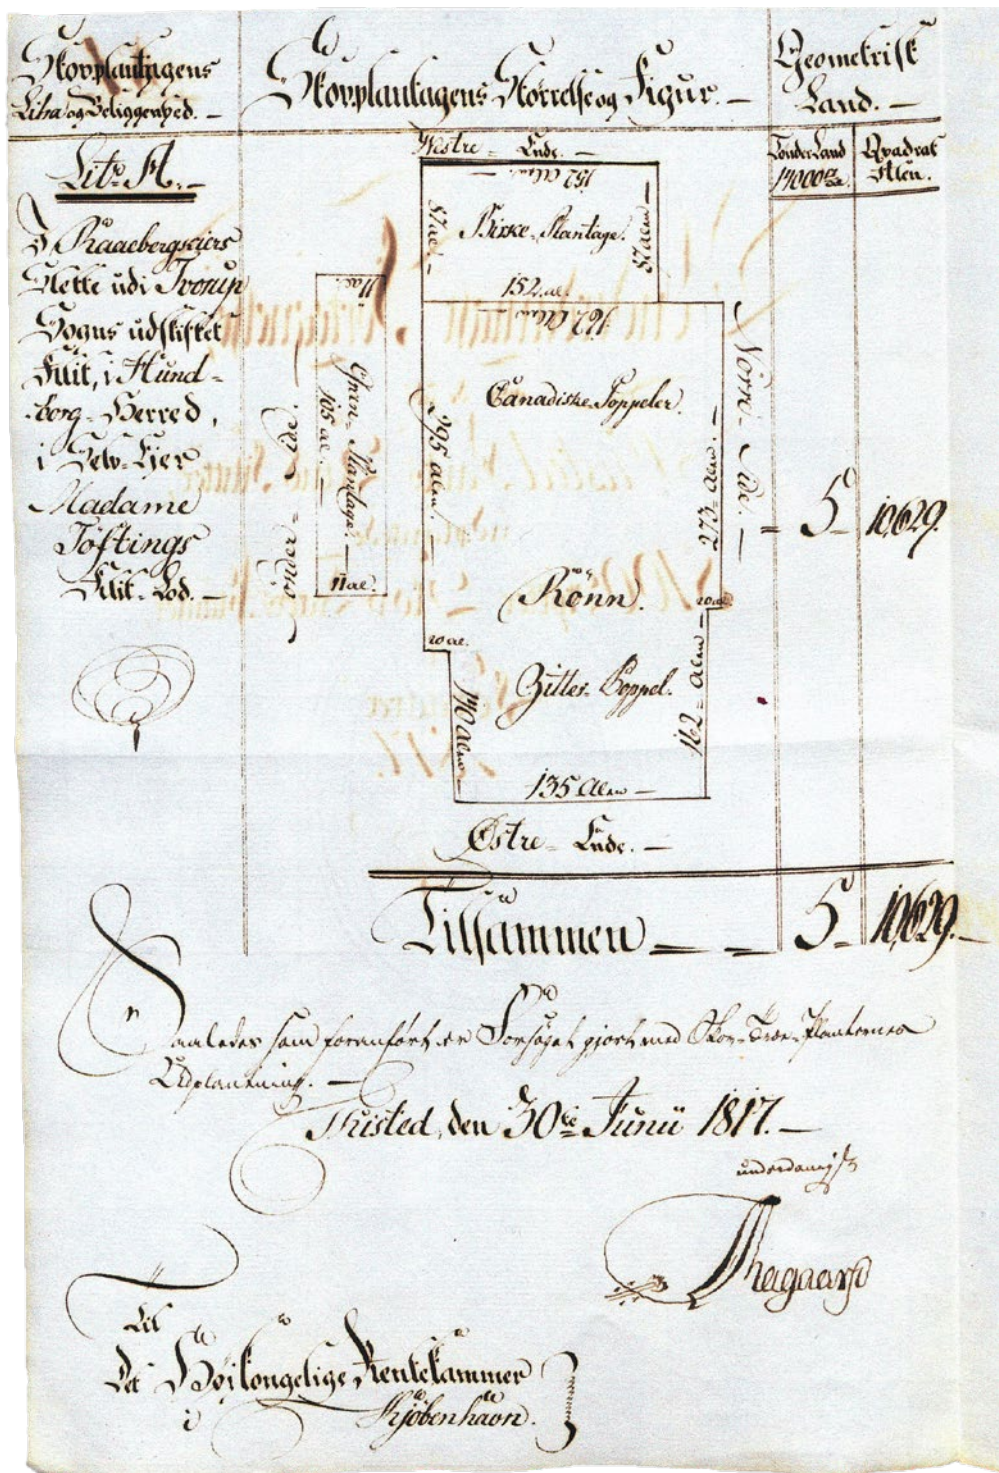 Skovplantagens
Litra og Beliggenhed. —
Skovplantagens Störrelse og Figur. —
Geometrisk
Land. —
Tønder Land
14000
Qvadrat
Alen.
Litr. A. —
I Raaebergskiers
Slette udi Torup
Sogns udskiftet
Klit, i Hund-
borg-Herred,
i Selv-Ejer
Madame
Töftings
Klit-Lod. —
Westre - Ende. —
152 Alen —
87 al. —
Birke-Plantage.
87 alen —
152. al.
162 Alen —
11 al.
Gran-Plantage. —
105 al. —
11 al.
Sönder - Side. —
Canadiske Poppeler.
295 alen. —
273. Alen. —
Norre - Side. —
Rönn.
20 al.
20 al.
Zitter-Poppel.
140 alen —
162 - alen —
135 Alen —
Østre - Ende. —
= 5 - 10,629.
Tilsammen — — — 5 - 10,629. —
Saaledes som foranfört er Forsöget gjort med Skov-Træe-Planternes
Udplantning. —
Thisted, den 30te Junii 1817. —
underdanigst
Thagaard
Til
Det Höikongelige Rentekammer
i Kjöbenhavn.